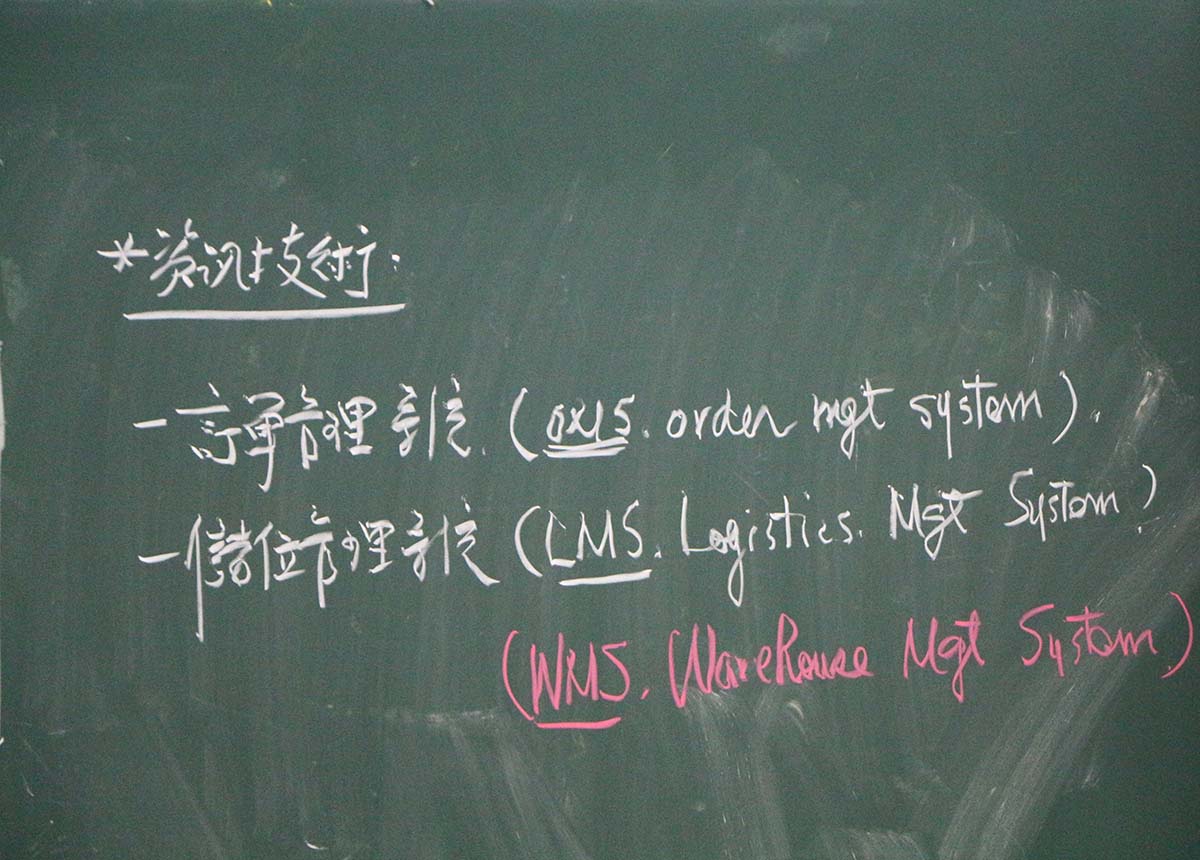 *资讯技術:
-訂單管理系統.(OMS. order mgt system).
-儲位管理系統(LMS. Logistics. Mgt System)
(WMS. Warehouse Mgt System)